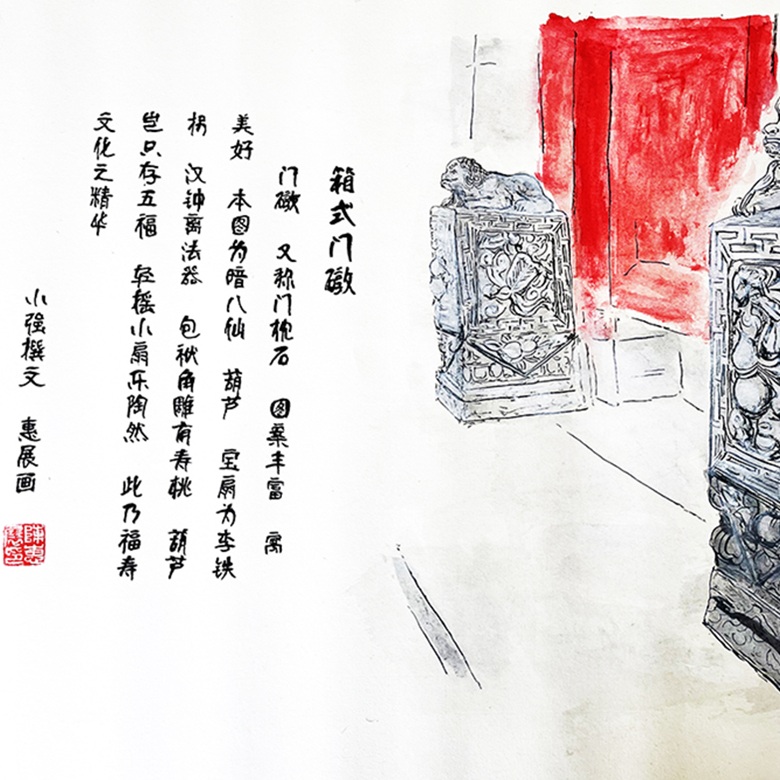 箱式门礅
门礅 又称门枕石 图案丰富 寓
美好 本图为暗八仙 葫芦 宝扇为李铁
拐 汉钟离法器 包袱角雕有寿桃 葫芦
岂只存五福 轻摇小扇乐陶然 此乃福寿
文化之精华
小强撰文 惠展画
陈惠